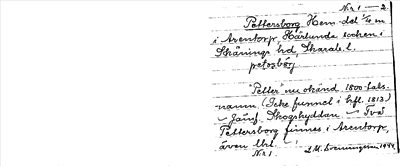 Nr 1 — 2.
Pettersborg Hem. del
i Arentorp, Härlunda socken i
Skånings hd, Skarab. l.
petæsbårj
"Petter" nu okänd 1800-tals-
namn. (Icke funnet i hfl. 1813)
Jämf. Skogshyddan Två
Pettersborg finnes i Arentorp,
även Nr 1.